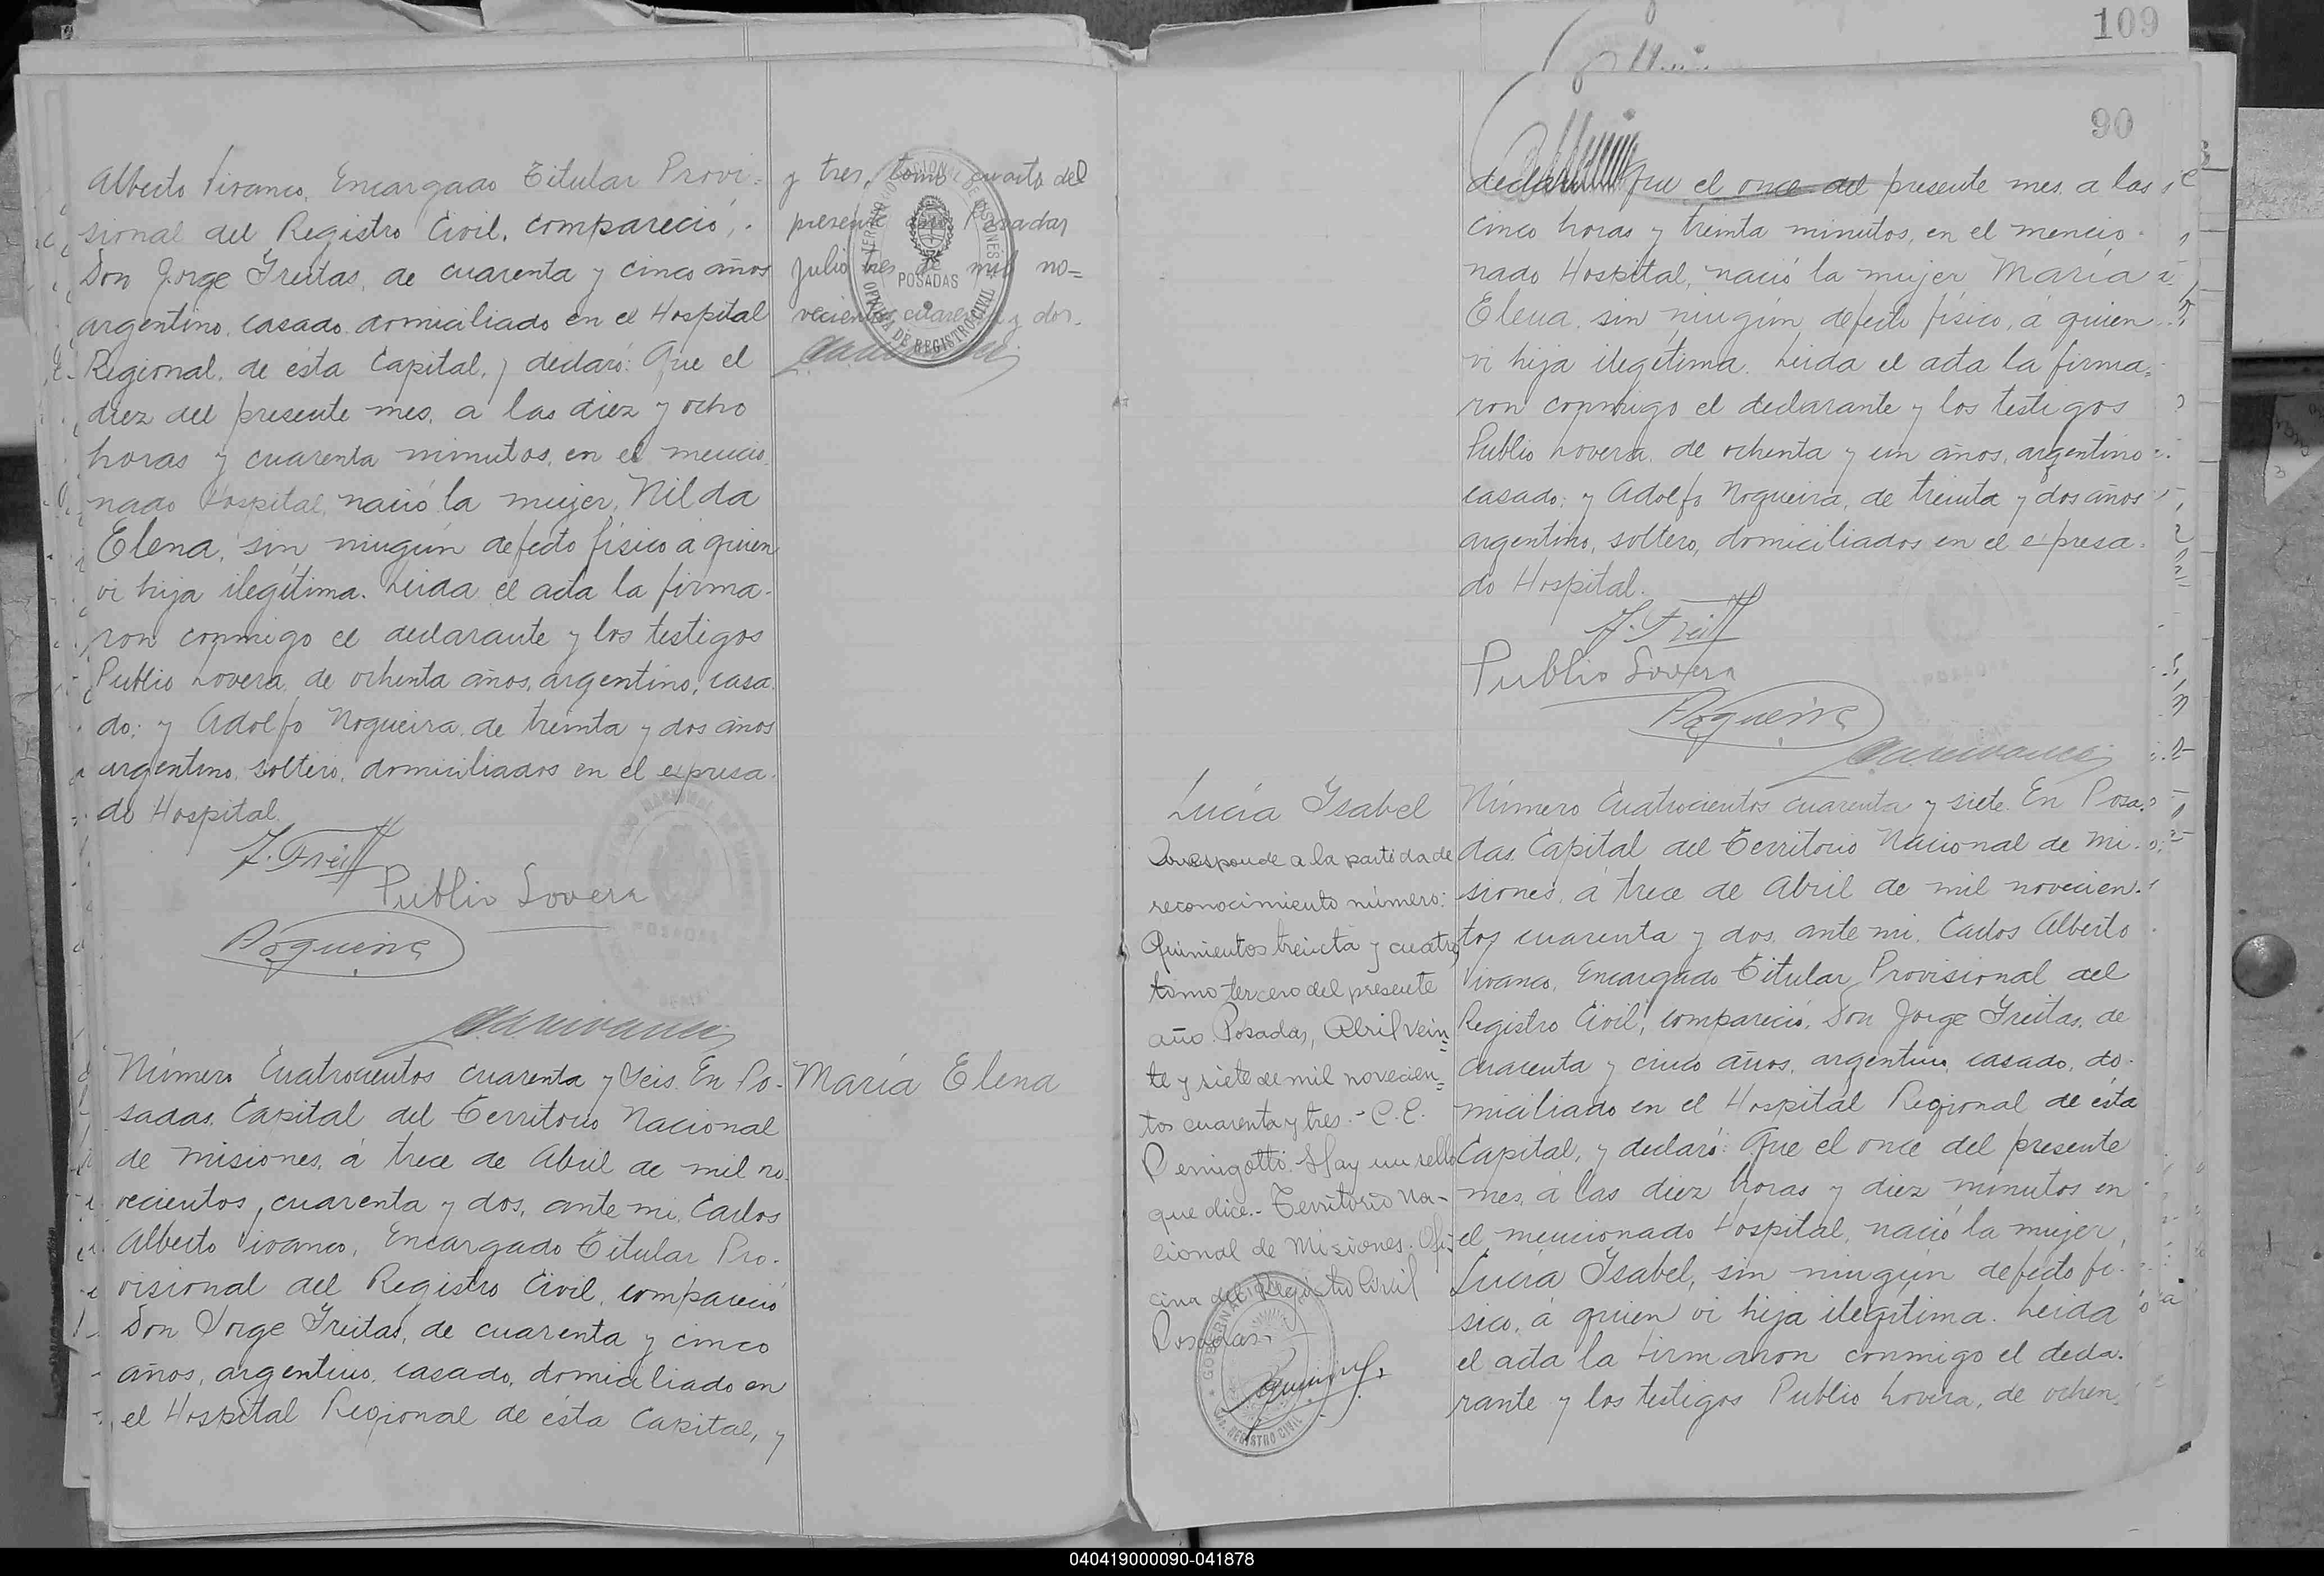 Alberto Vivanco, Encargado Titular Provi=
sional del Registro Civil, compareció,
Don Jorge Freitas, de cuarenta y cinco años
argentino, casado, domiciliado en el Hospital
Regional, de ésta Capital, y declaró: Que el
diez del presente mes, a las diez y ocho
horas y cuarenta minutos, en el mencio
nado Hospital, nació la mujer, Nilda
Elena, sin ningún defecto físico á quien
vi hija ilegítima. Leida el acta la firma-
ron conmigo el declarante y los testigos
Publio Lovera, de ochenta años, argentino, casa
do; y Adolfo Nogueira, de treinta y dos años
argentino, soltero, domiciliados en el expresa-
do Hospital.
Publio Lovera
Nogueira
Número Cuatrocientos cuarenta y seis. En Po-
sadas, Capital del Territorio Nacional
de Misiones, á trece de Abril de mil no-
vecientos, cuarenta y dos, ante mi, Carlos
Alberto Vivanco, Encargado Titular Pro-
visional del Registro Civil, compareció
Don Jorge Freitas, de cuarenta y cinco
años, argentino, casado, domiciliado en
el Hospital Regional de ésta Capital, y
y tres, tomo cuarto del
presente año Posadas
Julio tres de mil no=
vecientos cuarenta y dos.
POSADAS
OFICINA DE REGISTRO CIVIL
María Elena
109
90
Que el once del presente mes, a las
cinco horas y treinta minutos, en el mencio-
nado Hospital, nació la mujer María
Elena, sin ningún defecto físico, á quien
vi hija ilegítima. Leida el acta la firma=
ron conmigo el declarante y los testigos
Publio Lovera, de ochenta y un años, argentino
casado; y Adolfo Nogueira, de treinta y dos años
argentino, soltero, domiciliados en el expresa-
do Hospital.
Publio Lovera
Nogueira
Lucía Isabel
Corresponde a la partida de
reconocimiento número:
Quinientos treinta y cuatro
tomo tercero del presente
año. Posadas, Abril vein=
te y siete de mil novecien=
tos cuarenta y tres.- C. E.
Hay un sello
que dice.- Territorio Na-
cional de Misiones. Ofi-
cina del Registro Civil
Posadas.
REGISTRO CIVIL
Número Cuatrocientos cuarenta y siete. En Posa-
das, Capital del Territorio Nacional de Mi-
siones, á trece de Abril de mil novecien-
tos cuarenta y dos, ante mi, Carlos Alberto
Vivanco, Encargado Titular Provisional del
Registro Civil, compareció, Don Jorge Freitas, de
cuarenta y cinco años, argentino, casado, do-
miciliado en el Hospital Regional de ésta
Capital, y declaró: Que el once del presente
mes, á las diez horas y diez minutos en
el mencionado Hospital, nació la mujer,
Lucía Isabel, sin ningún defecto fí-
sico, á quien vi hija ilegítima. Leida
el acta la firmaron conmigo el decla-
rante y los testigos Publio Lovera, de ochen-
040419000090-041878